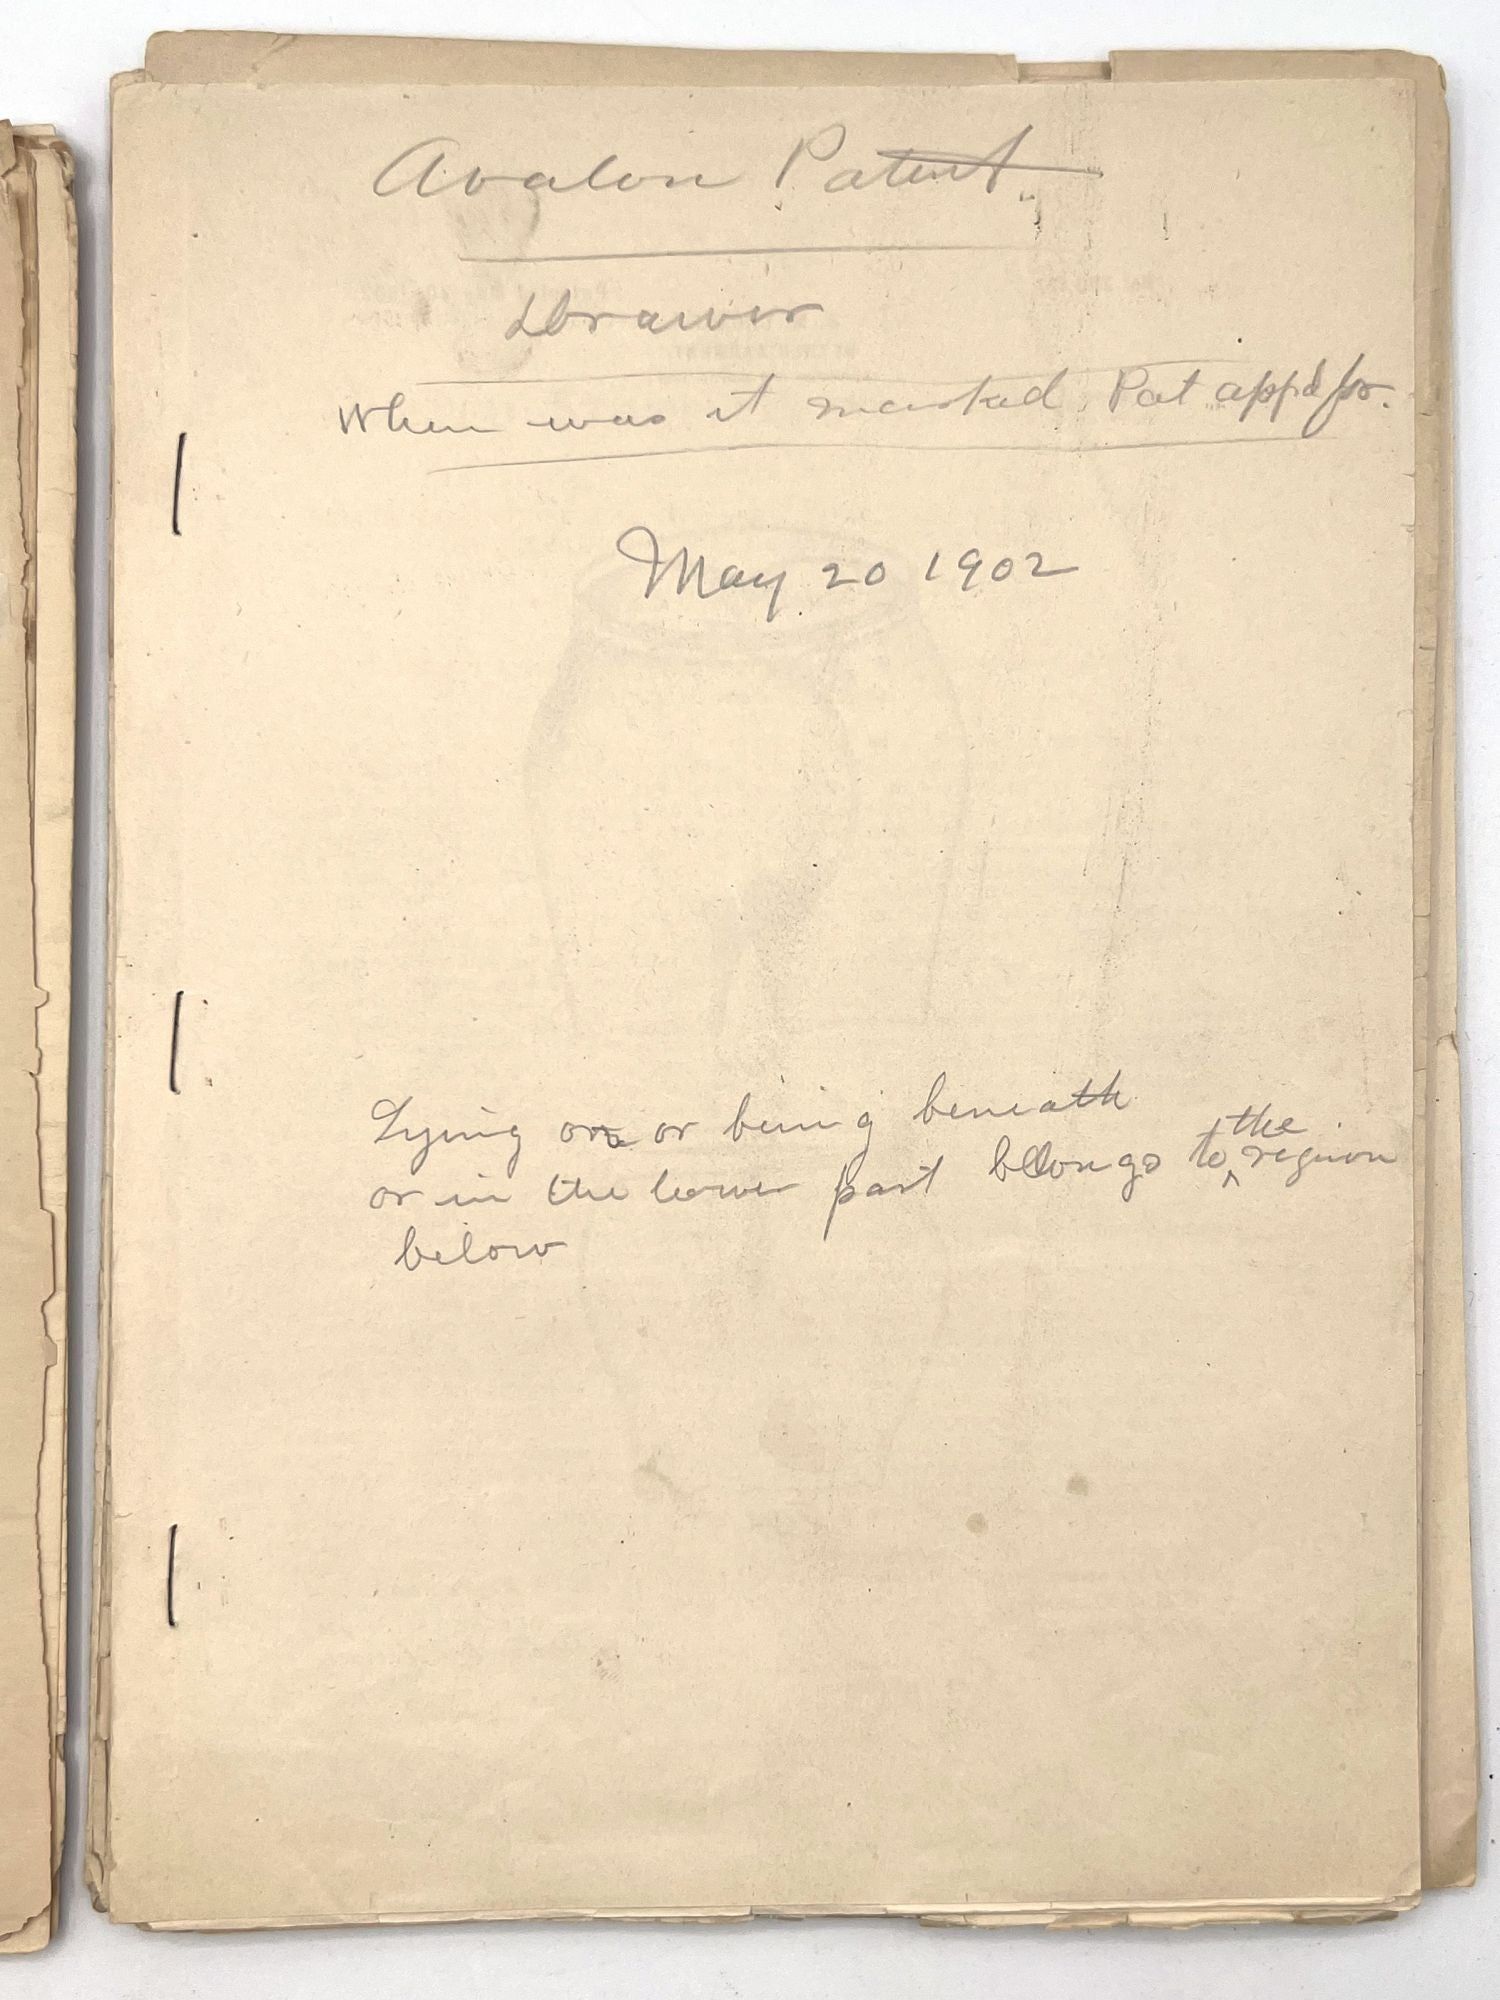 Avalon Patent
Drawer
When was it marked Pat app'd for.
May 20 1902
Lying on or being beneath
or in the lower part belongs to the region
below